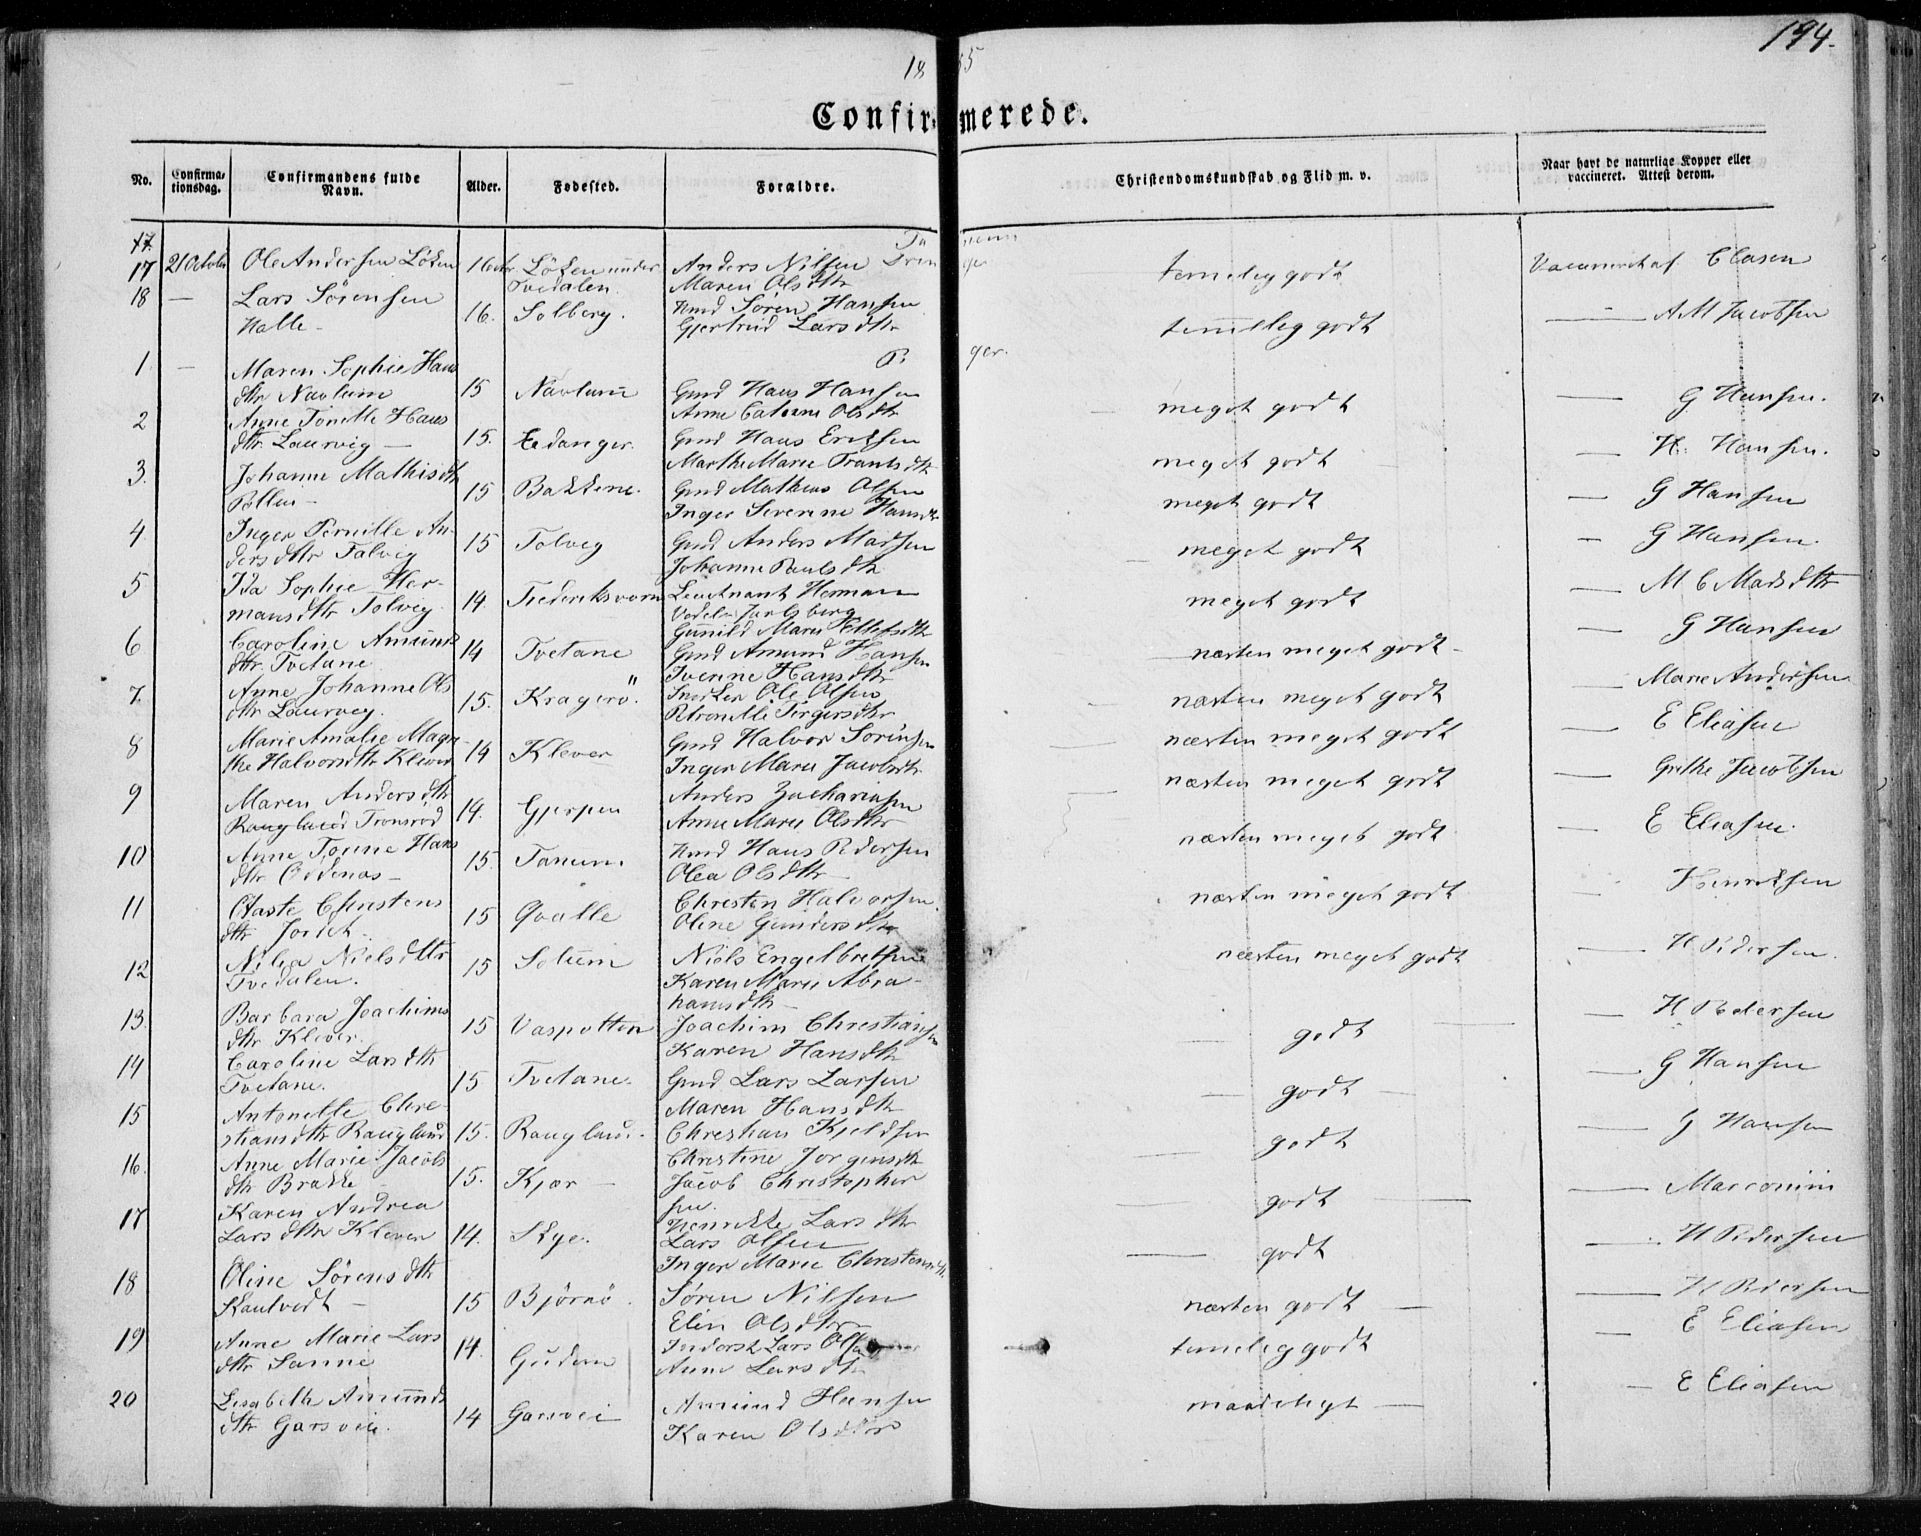 194.
18 55
Confirmerede.
No. Confirmationsdag. Confirmandens fulde Navn. Alder. Fødested. Forældre. Christendomskundskab og Flid m. v. Naar havt de naturlige Kopper eller vaccineret. Attest derom.
Ta num
Dren ge
17 21 Octob Ole Andersen Løken 16 Løken under Tvedalen. Anders Nilsen Maren Olsdtr temelig godt Clasen
18 — Lars Sørensen Halle - 16. Solberg. Søren Hansen Gjertrud Larsdtr temelig godt — A M Jacobsen
P. ger.
1 — Maren Sophie Hans dtr Navlum 15 Navlum Gmd Hans Hansen Anne Olsdtr meget godt — G Hansen.
2 Anne Tonille Hans dtr Laurvig — 15. Eidanger. Gmd Hans Eriksen Marthe Marie Frantsdtr meget godt — H. Hansen.
3. Johanne Mathisdtr 15 Bakkene. Gmd Mathias Olsen Inger Severine Hansdtr meget godt — G Hansen
4 Inger Pernille Andersdtr Tolvig 15 Tolvig Gmd Anders Madsen Johanne Paulsdtr meget godt — G Hansen.
5 Ida Sophie Hermansdtr Tolvig 14 Frederiksværn Lieutnant Herman Vedel-Jarlsberg Gunild Marie Ellefsdtr meget godt — M C Madsdtr
6 Caroline Amunds dtr. Tvetane 14 Tvetane Gmd Amund Hansen Iverine Hansdtr næsten meget godt — G Hansen
7. Anne Johanne Ols dtr Laurvig. 15. Kragerö. Ole Olsen Petronelle Tergersdtr næsten meget godt — Marie Andersen
8 Marie Amalie Magrethe Halvorsdtr Klever 14 Klever Gmd Halvor Sörensen Inger Marie Jacobsdtr næsten meget godt — E Eliasen
9 Maren Andersdtr Rauglund Tronsrød 14. Gjerpen Anders Zachariasen Anne Marie Olsdtr næsten meget godt Grethe Jacobsen
10 Anne Tomine Hans dtr Oddenes — 15. Tanum. Hans Pedersen Olea Olsdtr næsten meget godt — E Eliasen.
11 Aaste Christens dtr Jordet - 15 Qvelle Christen Halvorsen. Oline Gundersdtr næsten meget godt — Henriksen
12 Nilea Nielsdtr Tvedalen. 15 Solum Niels Engelbretsen Karen Marie Abrahamsdtr næsten meget godt — H Pedersen.
13. Barbara Joachims dtr Klever. 15 Vaspotten Joachim Christiansen Karen Hansdtr godt — H Pedersen
14 Caroline Larsdtr Tvetane. 15 Tvetane. Gmd Lars Larsen Maren Hansdtr godt — G Hansen
15 Antonette Christiansdtr Rauglund 15. Rauglund. Christian Kjeldsen Christine Jörgensdtr godt — G Hansen
16. Anne Marie Jacobs dtr Brække 15. Kjær — Jacob Christophersen. Henrikke Larsdtr godt — Marconini
17 Karen Andrea Larsdtr Klever 14. Skye. Lars Olsen Inger Marie Christensdtr godt — H Pedersen
18 Oline Sörensdtr Skautvedt — 15 Bjørnø. Søren Nilsen Elin Olsdtr næsten godt — H Pedersen
19 Anne Marie Lars dtr Sanne 14. Gudem Inderst Lars Olsen Anne Larsdtr temelig godt — E Eliasen
20 Lisabeth Amunds dtr Garsvei. 14 Garsvei Amund Hansen Karen Olsdtr maadeligt — E Eliasen